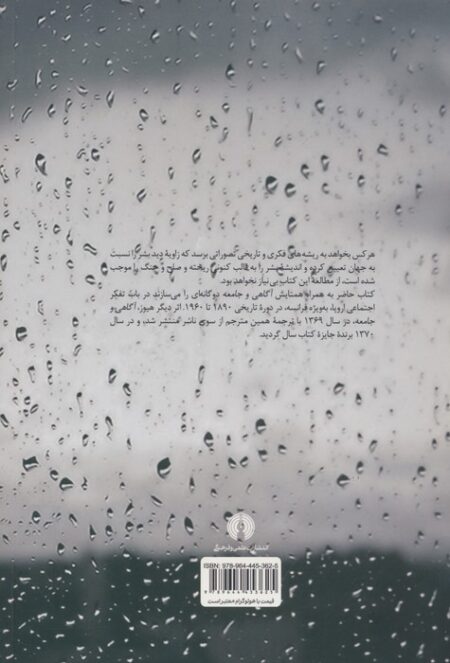 هرکس بخواهد به ریشه‌های فکری و تاریخی تصوراتی برسد که زاویهٔ دید بشر را نسبت
به جهان تعیین کرده و اندیشهٔ بشر را به قالب کنونی ریخته و صلح و جنگ را موجب
شده است، از مطالعهٔ این کتاب بی‌نیاز نخواهد بود.
کتاب حاضر به همراه همتایش آگاهی و جامعه دوگانه‌ای را می‌سازند در باب تفکر
اجتماعی اروپا، به‌ویژه فرانسه، در دورهٔ تاریخی ۱۸۹۰ تا ۱۹۶۰. اثر دیگر هیوز، آگاهی و
جامعه، در سال ۱۳۶۹ با ترجمهٔ همین مترجم از سوی ناشر منتشر شد، و در سال
۱۳۷۰ برندهٔ جایزهٔ کتاب سال گردید.
انتشارات علمی و فرهنگی
ISBN: 978-964-445-362-5
قیمت با هولوگرام معتبر است